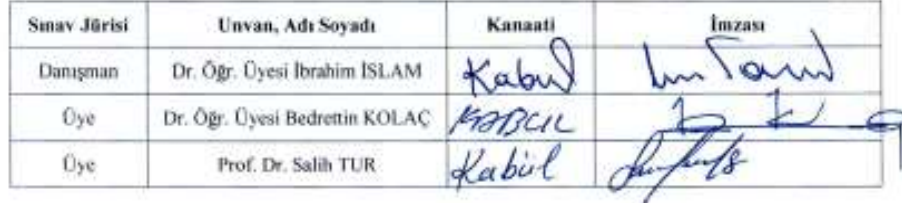 Sınav Jürisi Unvan, Adı Soyadı Kanaati İmzası
Danışman Dr. Öğr. Üyesi İbrahim İSLAM Kabul
Üye Dr. Öğr. Üyesi Bedrettin KOLAÇ KABUL
Üye Prof. Dr. Salih TUR Kabül